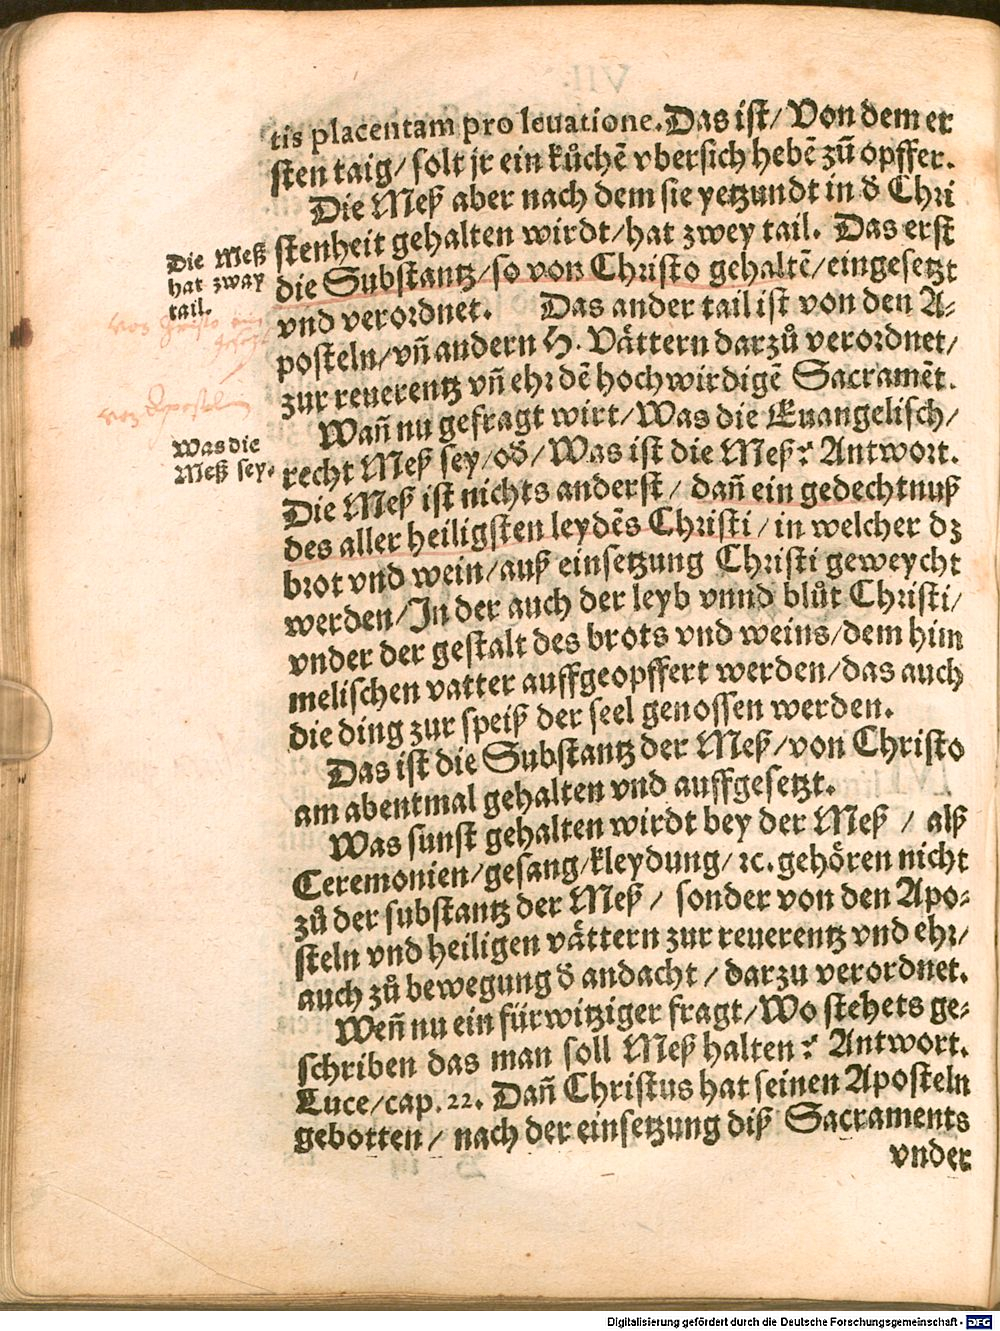 tis placentam pro leuatione. Das ist/ Von dem er
sten taig/ solt jr ein kůchē vbersich hebē zů opffer.
Die Meß aber nach dem sie yetzundt in d' Chri
stenheit gehalten wirdt/ hat zwey tail. Das erst
Die Meß
hat zway
tail.
die Substantz/ so von Christo gehaltē/ eingesetzt
vnd verordnet. Das ander tail ist von den A-
posteln/ vñ andern H. Vättern darzů verordnet/
zur reuerentz vñ ehr dē hochwirdigē Sacramēt.
von Christo ein
von Apostlen
Wañ nu gefragt wirt/ Was die Euangelisch/
Was die
Meß sey.
recht Meß sey/ od'/ Was ist die Meß? Antwort.
Die Meß ist nichts anderst/ dañ ein gedechtnuß
des aller heiligsten leydēs Christi/ in welcher dz
brot vnd wein/ auß einsetzung Christi geweycht
werden/ In der auch der leyb vnnd blůt Christi/
vnder der gestalt des brots vnd weins/ dem him
melischen vatter auffgeopffert werden/ das auch
die ding zur speiß der seel genossen werden.
Das ist die Substantz der Meß/ von Christo
am abentmal gehalten vnd auffgesetzt.
Was sunst gehalten wirdt bey der Meß / alß
Ceremonien/ gesang/ kleydung/ ꝛc. gehören nicht
zů der substantz der Meß / sonder von den Apo-
steln vnd heiligen vättern zur reuerentz vnd ehr/
auch zů bewegung d' andacht / darzu verordnet.
Weñ nu ein fürwitziger fragt/ Wo stehets ge-
schriben das man soll Meß halten? Antwort.
Luce/ cap. 22. Dañ Christus hat seinen Aposteln
gebotten / nach der einsetzung diß Sacraments
vnder
Digitalisierung gefördert durch die Deutsche Forschungsgemeinschaft - DFG